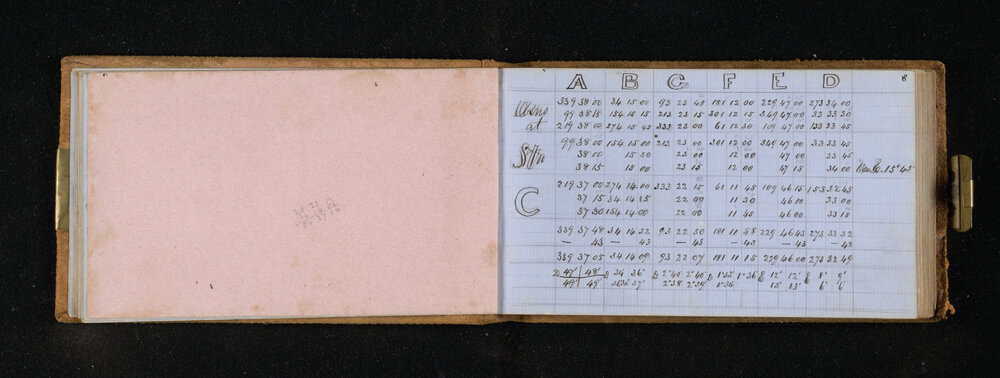 8
A B C F E D
Observns 339 38 00 34 15 00 93 22 45 181 12 00 229 47 00 273 34 00
99 38 15 154 15 15 213 23 15 301 12 15 349 47 00 33 33 30
at 219 38 00 274 15 45 333 23 00 61 12 30 109 47 00 153 33 45
99 38 00 154 15 00 213 23 00 301 12 00 349 47 00 33 33 45
Stn 38 00 15 30 23 00 12 00 47 00 33 45
38 15 15 00 23 15 12 00 47 15 34 00
C 219 37 00 274 14 00 333 22 15 61 11 45 109 46 15 153 32 45
37 15 34 14 15 22 00 11 30 46 00 33 00
37 30 154 14 00 22 00 11 45 46 00 33 15
339 37 48 34 14 52 93 22 50 181 11 58 229 46 43 273 33 32
— 43 — 43 — 43 — 43 — 43 — 43
339 37 05 34 14 09 93 22 07 181 11 15 229 46 00 273 32 49
D 47' 48' D 34 36' D 2°40' 2°40' D 1°35' 1°36' E 12' 12' E 8' 9'
49' 49' 37' 2°38 2°39' 1°36 13' 13' 6' 6'